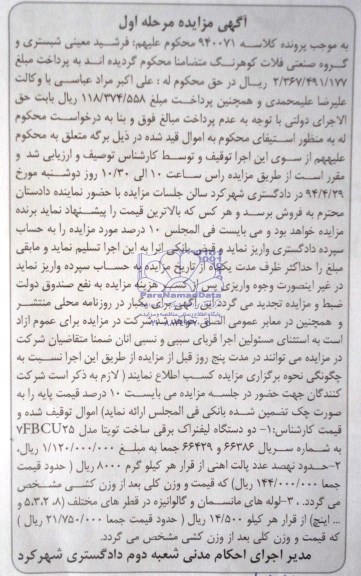 آگهی مزایده مرحله اول
به موجب پرونده کلاسه ۹۴۰۰۷۱ محکوم علیهم: فرشید معینی شبستری و
گروه صنعتی فلات کوهرنگ متضامنا محکوم گردیده اند به پرداخت مبلغ
۲/۳۶۷/۴۹۱/۱۷۷ ریال در حق محکوم له : علی اکبر مراد عباسی با وکالت
علیرضا علیمحمدی و همچنین پرداخت مبلغ ۱۱۸/۳۷۴/۵۵۸ ریال بابت حق
الاجرای دولتی با توجه به عدم پرداخت مبالغ فوق و بنا به درخواست محکوم
له به منظور استیفای محکوم به اموال قید شده در ذیل برگه متعلق به محکوم
علیهم از سوی این اجرا توقیف و توسط کارشناس توصیف و ارزیابی شد و
مقرر است از طریق مزایده راس ساعت ۱۰ الی ۱۰/۳۰ روز دوشنبه مورخ
۹۴/۴/۲۹ در دادگستری شهرکرد سالن جلسات مزایده با حضور نماینده دادستان
محترم به فروش برسد و هر کس که بالاترین قیمت را پیشنهاد نماید برنده
مزایده خواهد بود و می بایست فی المجلس ۱۰ درصد مورد مزایده را به حساب
سپرده دادگستری واریز نماید و قبض بانکی آنرا به این اجرا تسلیم نماید و مابقی
مبلغ را حداکثر ظرف مدت یکماه از تاریخ مزایده به حساب سپرده واریز نماید
در غیر اینصورت وجوه واریزی پس از کسر هزینه مزایده به نفع صندوق دولت
ضبط و مزایده تجدید می گردد این آگهی برای یکبار در روزنامه محلی منتشر
و همچنین در معابر عمومی الصاق خواهد شد شرکت در مزایده برای عموم آزاد
است به استثنای مسئولین اجرا قربای سببی و نسبی آنان ضمنا متقاضیان شرکت
در مزایده می توانند در مدت پنج روز قبل از مزایده از طریق این اجرا نسبت به
چگونگی نحوه برگزاری مزایده کسب اطلاع نمایند ( لازم به ذکر است شرکت
کنندگان جهت حضور در جلسه مزایده می بایست ۱۰ درصد قیمت پایه را به
صورت چک تضمین شده بانکی فی المجلس ارائه نماید) اموال توقیف شده و
قیمت کارشناس:۱- دو دستگاه لیفتراک برقی ساخت تویتا مدل ۷FBCU۲۵
به شماره سریال ۶۶۳۸۶ و ۶۶۴۲۹ جمعا به مبلغ ۱/۱۲۰/۰۰۰/۰۰۰ ریال،
۲-حدود نهصد عدد پالت آهنی از قرار هر کیلو گرم ۸۰۰۰ ریال ( حدود قیمت
جمعا ۱۴۴/۰۰۰/۰۰۰ ریال) که قیمت و وزن کلی بعد از وزن کشی مشخص
می گردد. ، ۳-لوله های مانسمان و گالوانیزه در قطر های مختلف (۸، ۵،۳،۲ و
... اینچ) از قرار هر کیلو ۱۴/۵۰۰ ریال ( حدود قیمت جمعا ۲۱/۷۵۰/۰۰۰ ریال )
که قیمت و وزن کلی بعد از وزن کشی مشخص می گردد.
مدیر اجرای احکام مدنی شعبه دوم دادگستری شهرکرد
ParsNamadData